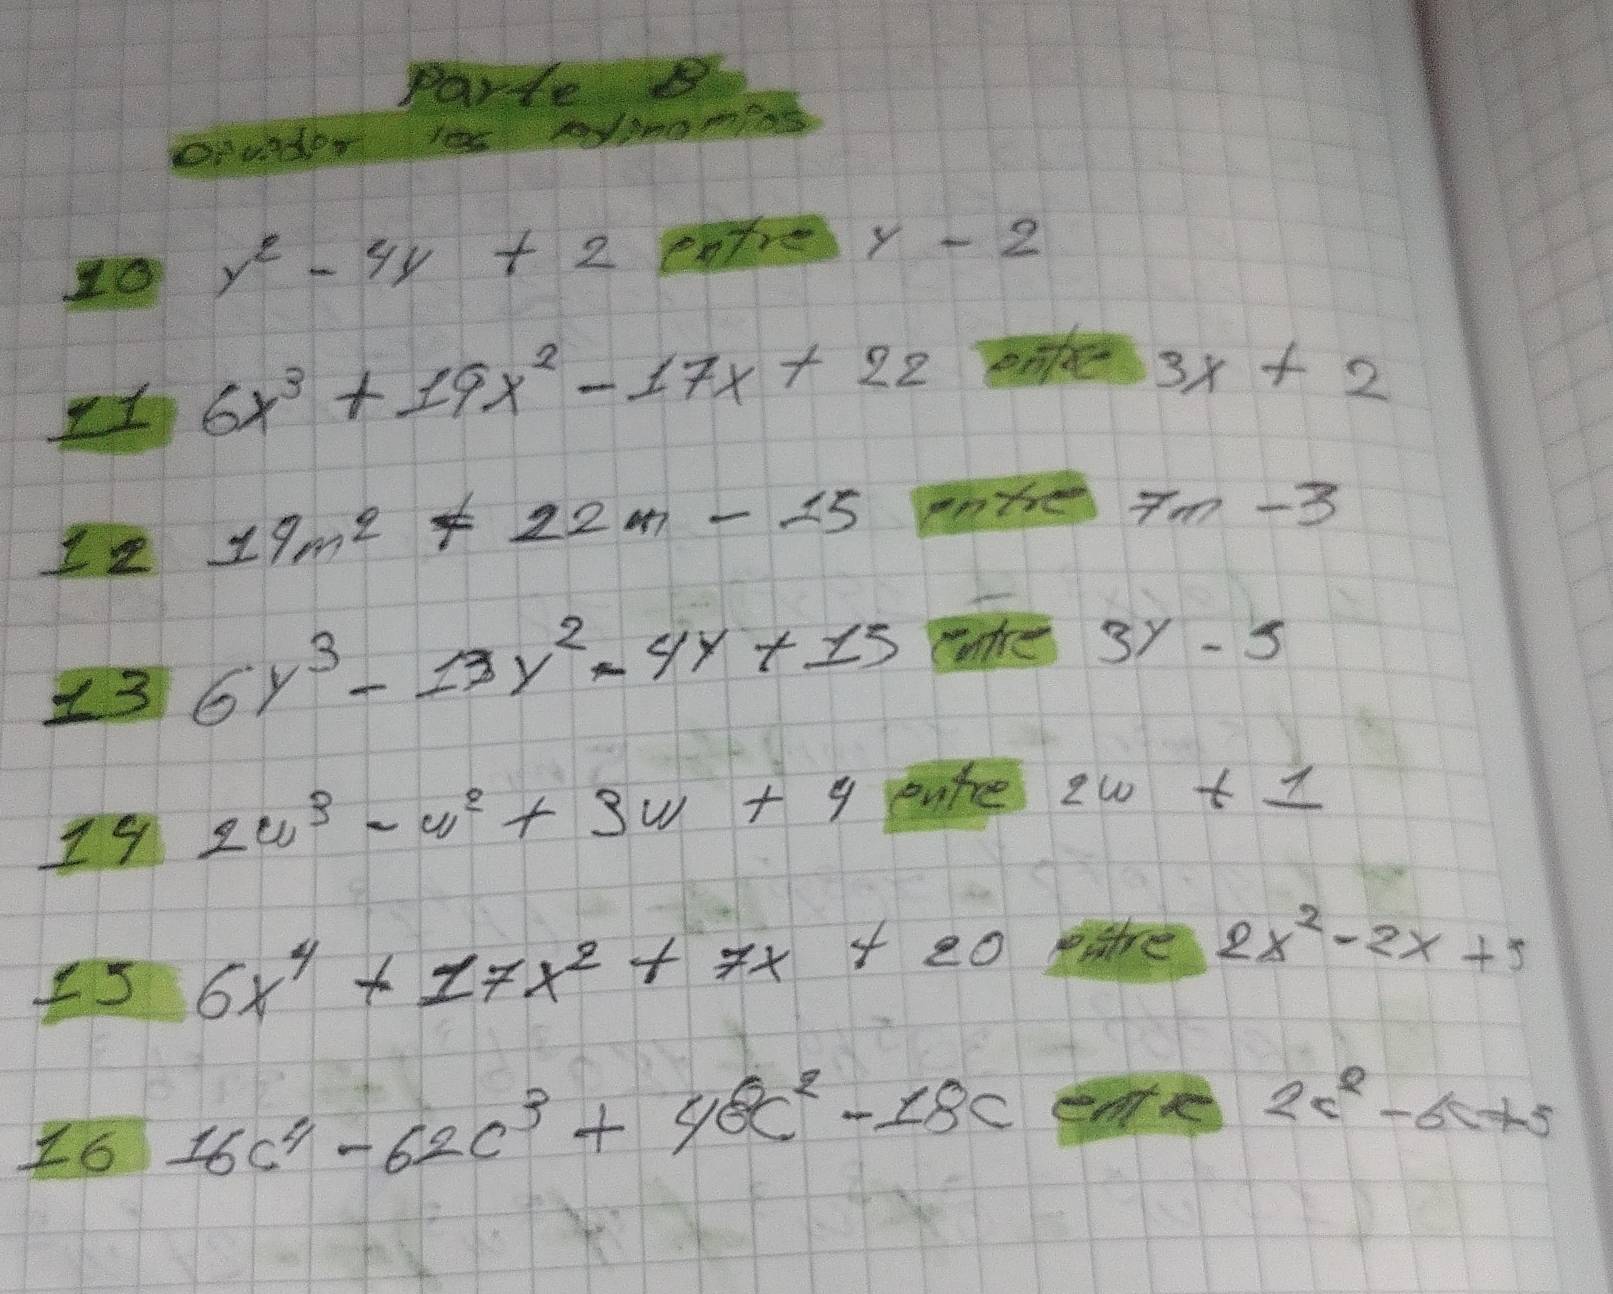 Parte B
Dividir los polinomios
10 y² - 4y + 2 entre y - 2
11 6x³ + 19x² - 17x + 22 entre 3x + 2
12 14m² + 22m - 15 entre 7m - 3
13 6y³ - 13y² - 4y + 15 entre 3y - 5
14 2w³ - w² + 3w + 4 entre 2w + 1
15 6x⁴ + 17x² + 7x + 20 entre 2x² - 2x + 5
16 16c⁴ - 62c³ + 48c² - 18c entre 2c² - 6c + 5